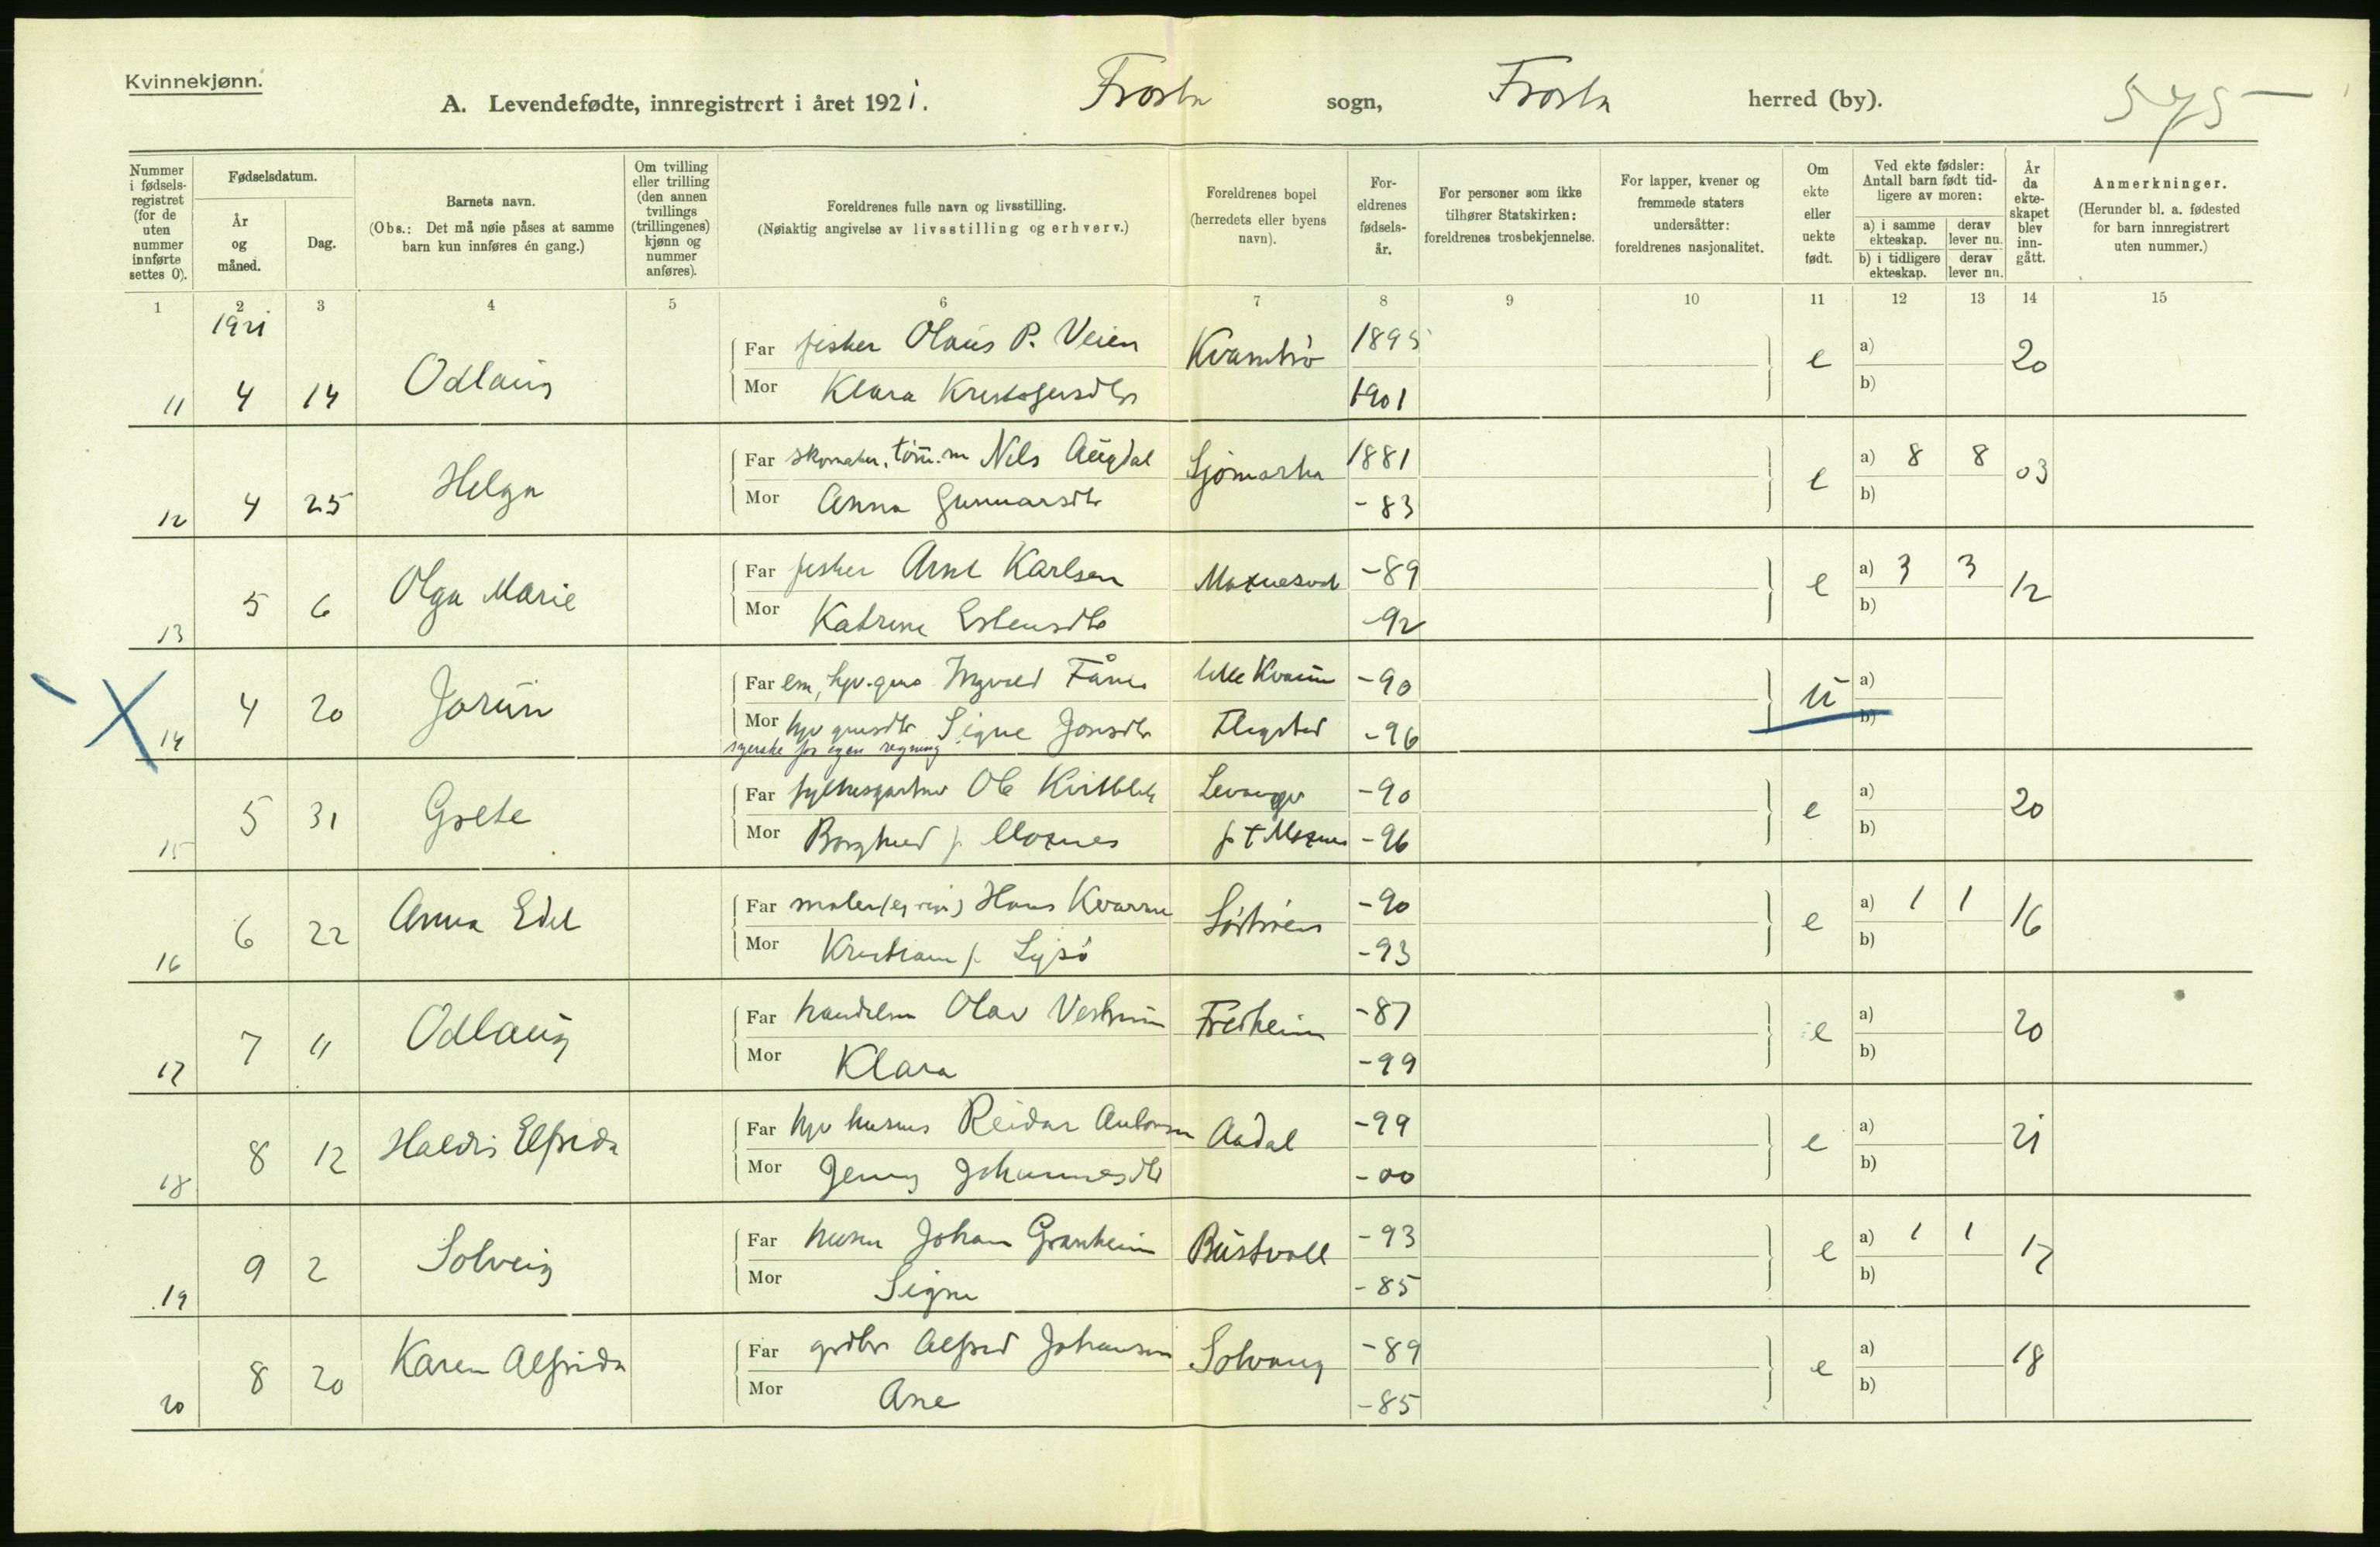 Kvinnekjønn.
A. Levendefødte, innregistrert i året 1921. Frosta sogn, Frosta herred (by). 575
Nummer i fødsels-registret (for de uten nummer innførte settes 0).
Fødselsdatum.
År og måned.
Dag.
Barnets navn.
(Obs.: Det må nøie påses at samme barn kun innføres én gang.)
Om tvilling eller trilling (den annen tvillings (trillingenes) kjønn og nummer anføres).
Foreldrenes fulle navn og livsstilling.
(Nøiaktig angivelse av livsstilling og erhverv.)
Foreldrenes bopel (herredets eller byens navn).
For-eldrenes fødsels-år.
For personer som ikke tilhører Statskirken: foreldrenes trosbekjennelse.
For lapper, kvener og fremmede staters undersåtter: foreldrenes nasjonalitet.
Om ekte eller uekte født.
Ved ekte fødsler: Antall barn født tid-ligere av moren:
a) i samme ekteskap. derav lever nu.
b) i tidligere ekteskap. derav lever nu.
År da ekte-skapet blev inn-gått.
Anmerkninger.
(Herunder bl. a. fødested for barn innregistrert uten nummer.)
1 2 3 4 5 6 7 8 9 10 11 12 13 14 15
1921
11 4 14 Odlaug Far fisker Olaus P. Veien Kvamtrø 1895 e a) 20
Mor Klara Kristofersdtr 1901 b)
12 4 25 Helga Far skomaker, töm.m Nils Augdal 1881 e a) 8 8 03
Mor Anna Gunnarsdtr -83 b)
13 5 6 Olga Marie Far fisker Arnt Karlsen -89 e a) 3 3 12
Mor Katrine Estensdtr -92 b)
14 4 20 Jorun Far em, Ingvald Fånes lille Kvam -90 u a)
Mor Signe Jonsdtr -96 b)
syerske for egen regning
15 5 31 Grete Far fylkesgartner Ole Levanger -90 e a) 20
Mor Borghild f. Moxnes p t Moxnes -96 b)
16 6 22 Anna Edel Far maler Hans -90 e a) 1 1 16
Mor f. Lyså -93 b)
17 7 11 Odlaug Far handelsm Olav Fredheim -87 e a) 20
Mor Klara -99 b)
18 8 12 Haldis Elfrida Far Reidar Antonsen Aadal -99 e a) 21
Mor Jenny Johannesdtr -00 b)
19 9 2 Solveig Far husm Johan Granheim Bustvoll -93 e a) 1 1 17
Mor Signe -85 b)
20 8 20 Karen Alfrida Far grdbr Alfred Johansen Solvang -89 e a) 18
Mor Ane -85 b)